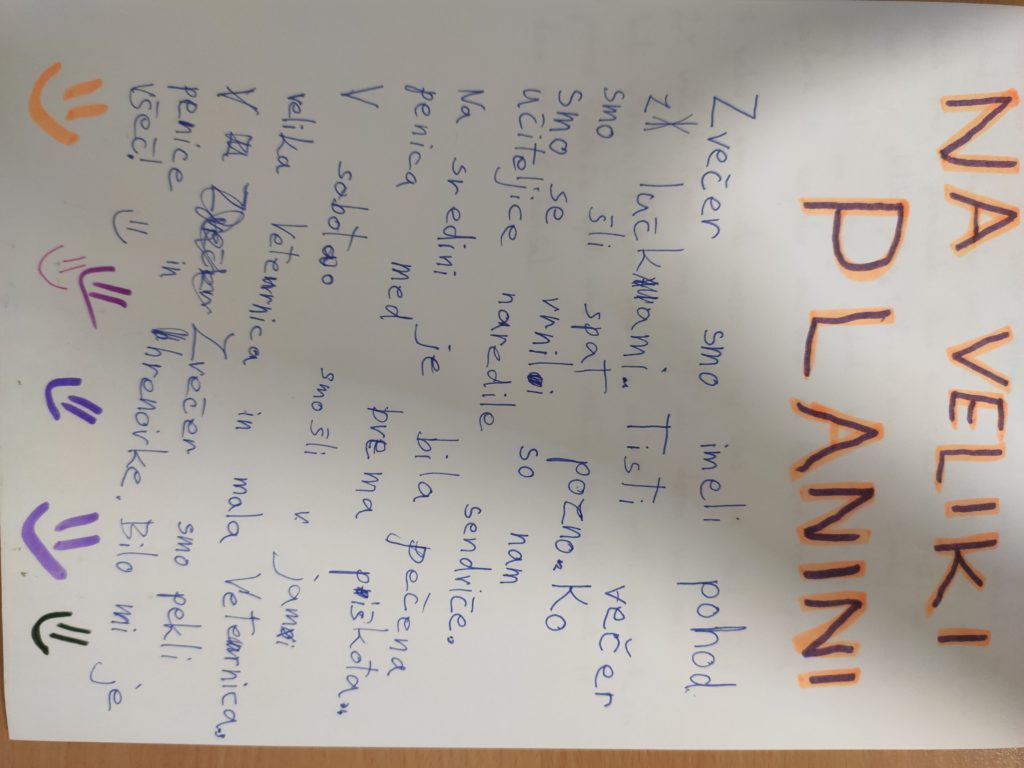 NA VELIKI
PLANINI
Zvečer smo imeli pohod
z lučkami. Tisti večer
smo šli spat pozno. Ko
smo se vrnili so nam
učiteljice naredile sendviče.
Na sredini je bila pečena
penica med prema piškota.
V soboto smo šli v jami
velika Veternica in mala Veternica.
Zvečer smo pekli
penice in hrenovke. Bilo mi je
všeč!